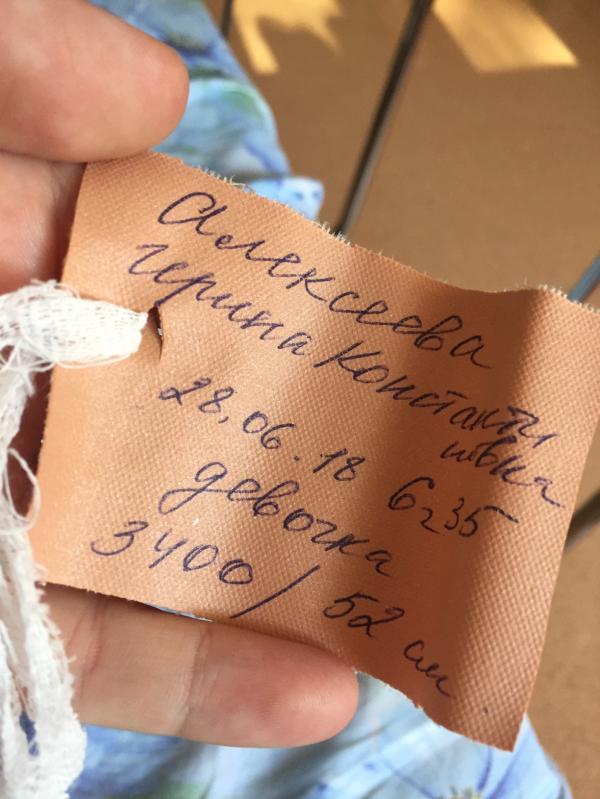 Алексеева
Константи
новна
28.06.18 6ч35
девочка
3400/ 52 см